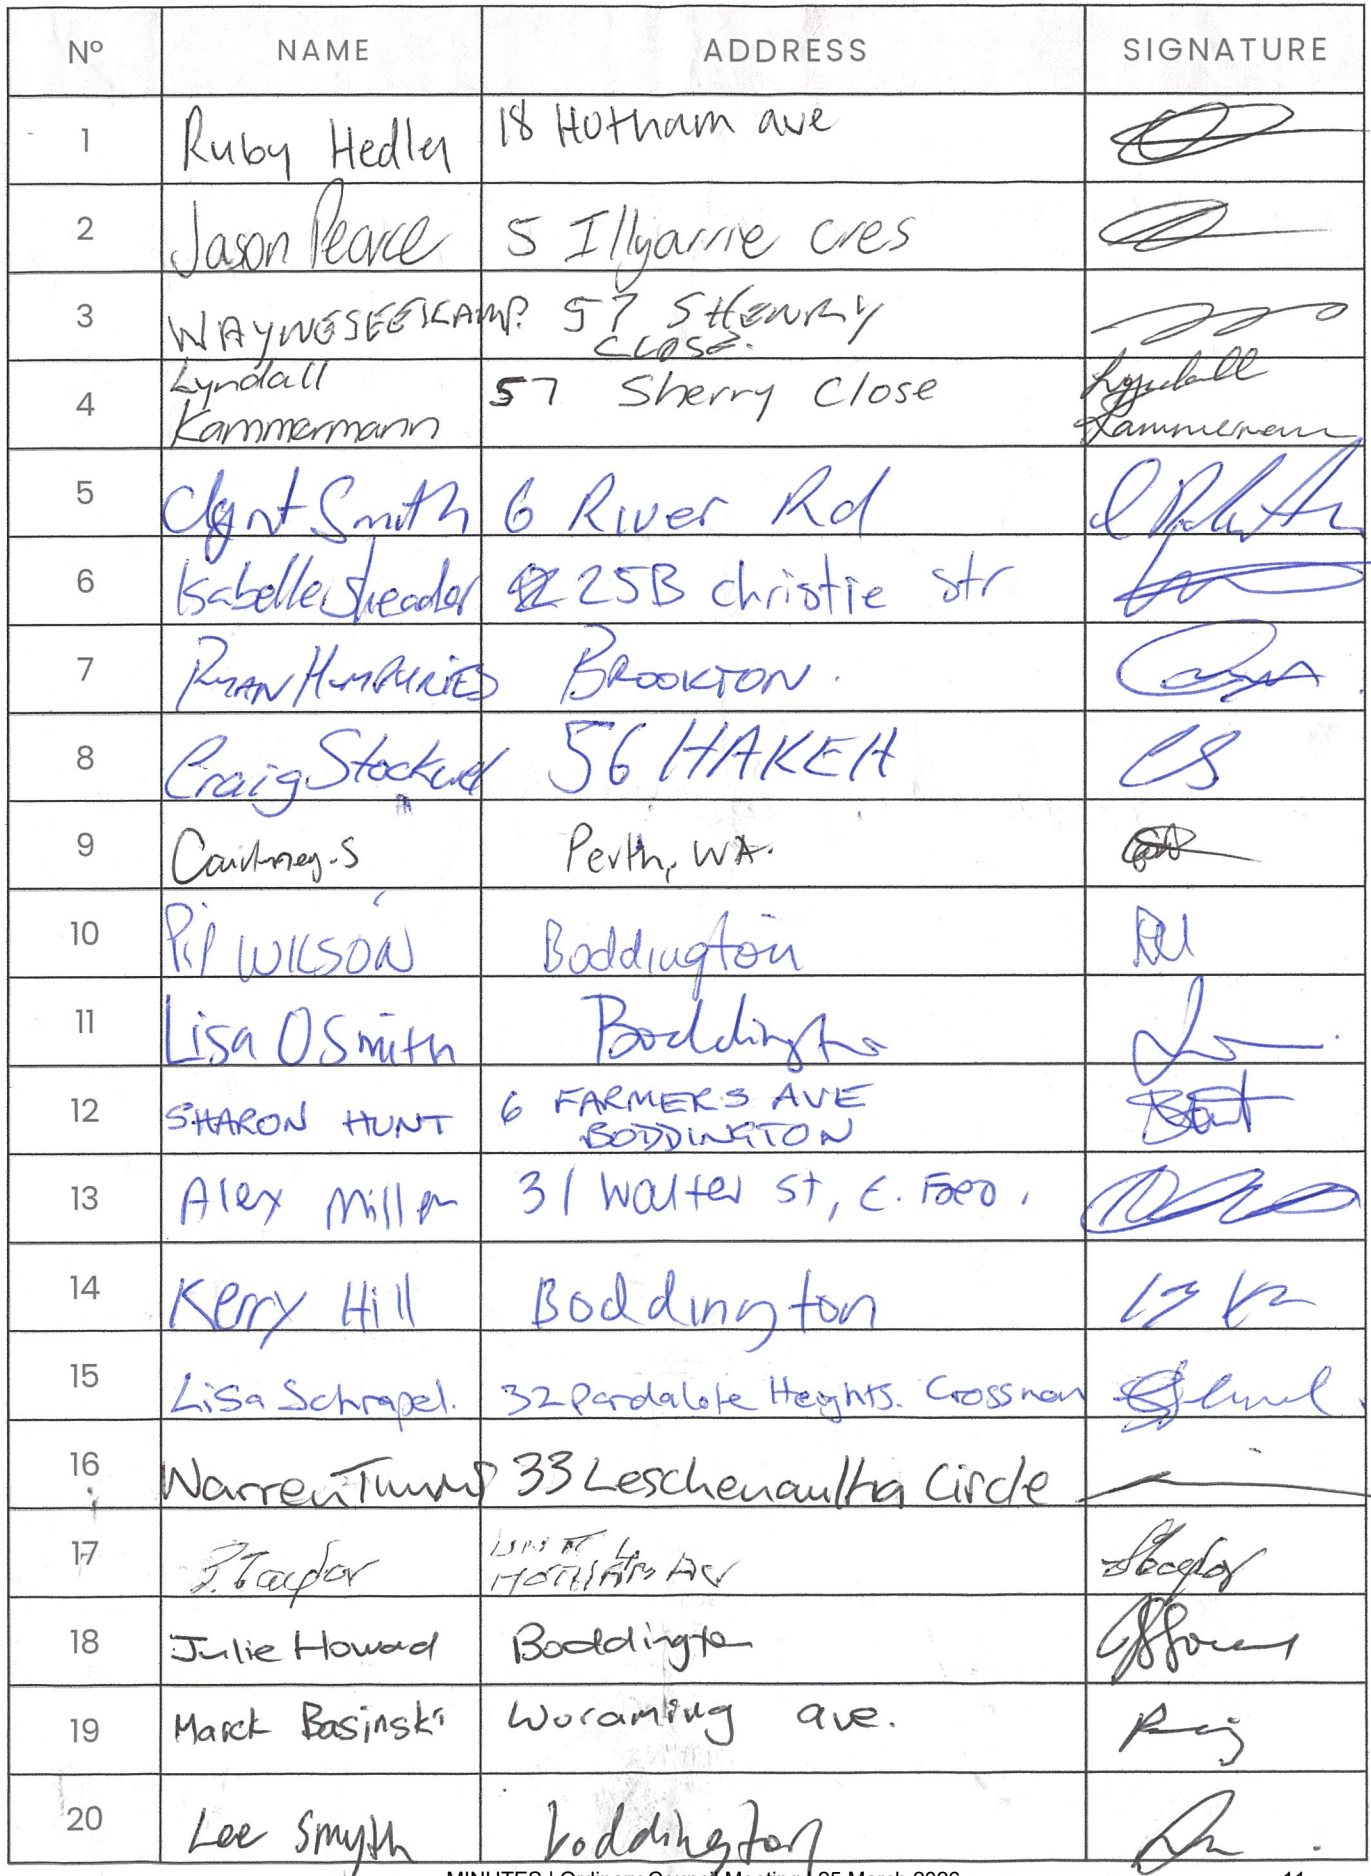 Nº NAME ADDRESS SIGNATURE
1 Ruby Hedley 18 Hotham ave
2 Jason Pearce 5 Illyarrie cres
3 WAYNE SEEKAMP. 57 SHERRY
CLOSE.
4 Lyndall 57 Sherry Close Lyndall
Kammermann Kammermann
5 Clynt Smith 6 River Rd
6 Isabelle 25B christie str
7 RYAN HUMPHRIES BROOKTON.
8 Craig Stockwell 56 HAKEA CS
9 Courtney.S Perth, WA.
10 Pip WILSON Boddington
11 Lisa O Smith Boddington
12 SHARON HUNT 6 FARMERS AVE
BODDINGTON
13 Alex Miller 31 Walter St, E.
14 Kerry Hill Boddington
15 Lisa Schrapel. 32 Pardalote Heights. Crossman
16 Warren 33 Leschenaultia Circle
17 Taylor UNIT 4
HOTHAM AV
18 Julie Howard Boddington
19 Marek Basinski Woraming ave.
20 Lee Smyth boddington
MINUTES | Ordinary Council Meeting | 25 March 2026 11